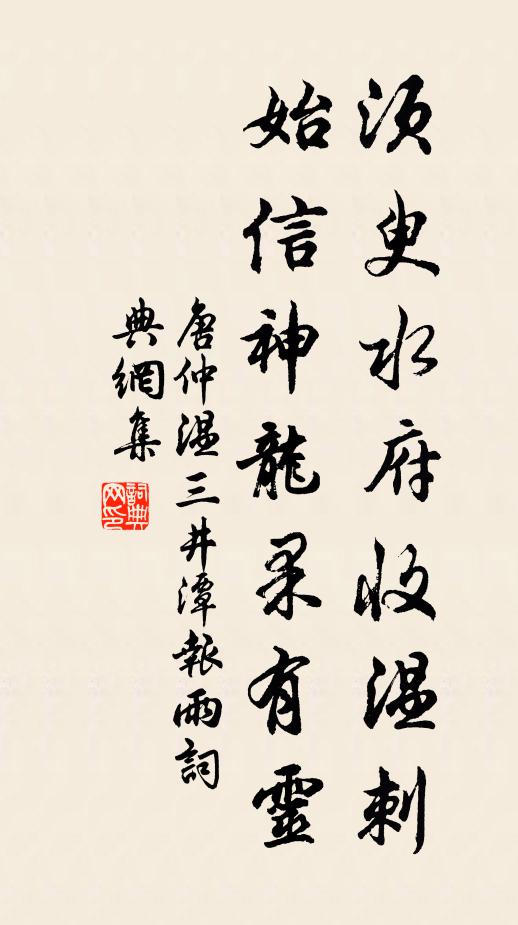 須臾水府收温刺
始信神龍果有靈
唐仲温三井潭報雨詞
典網集
詞典
网印